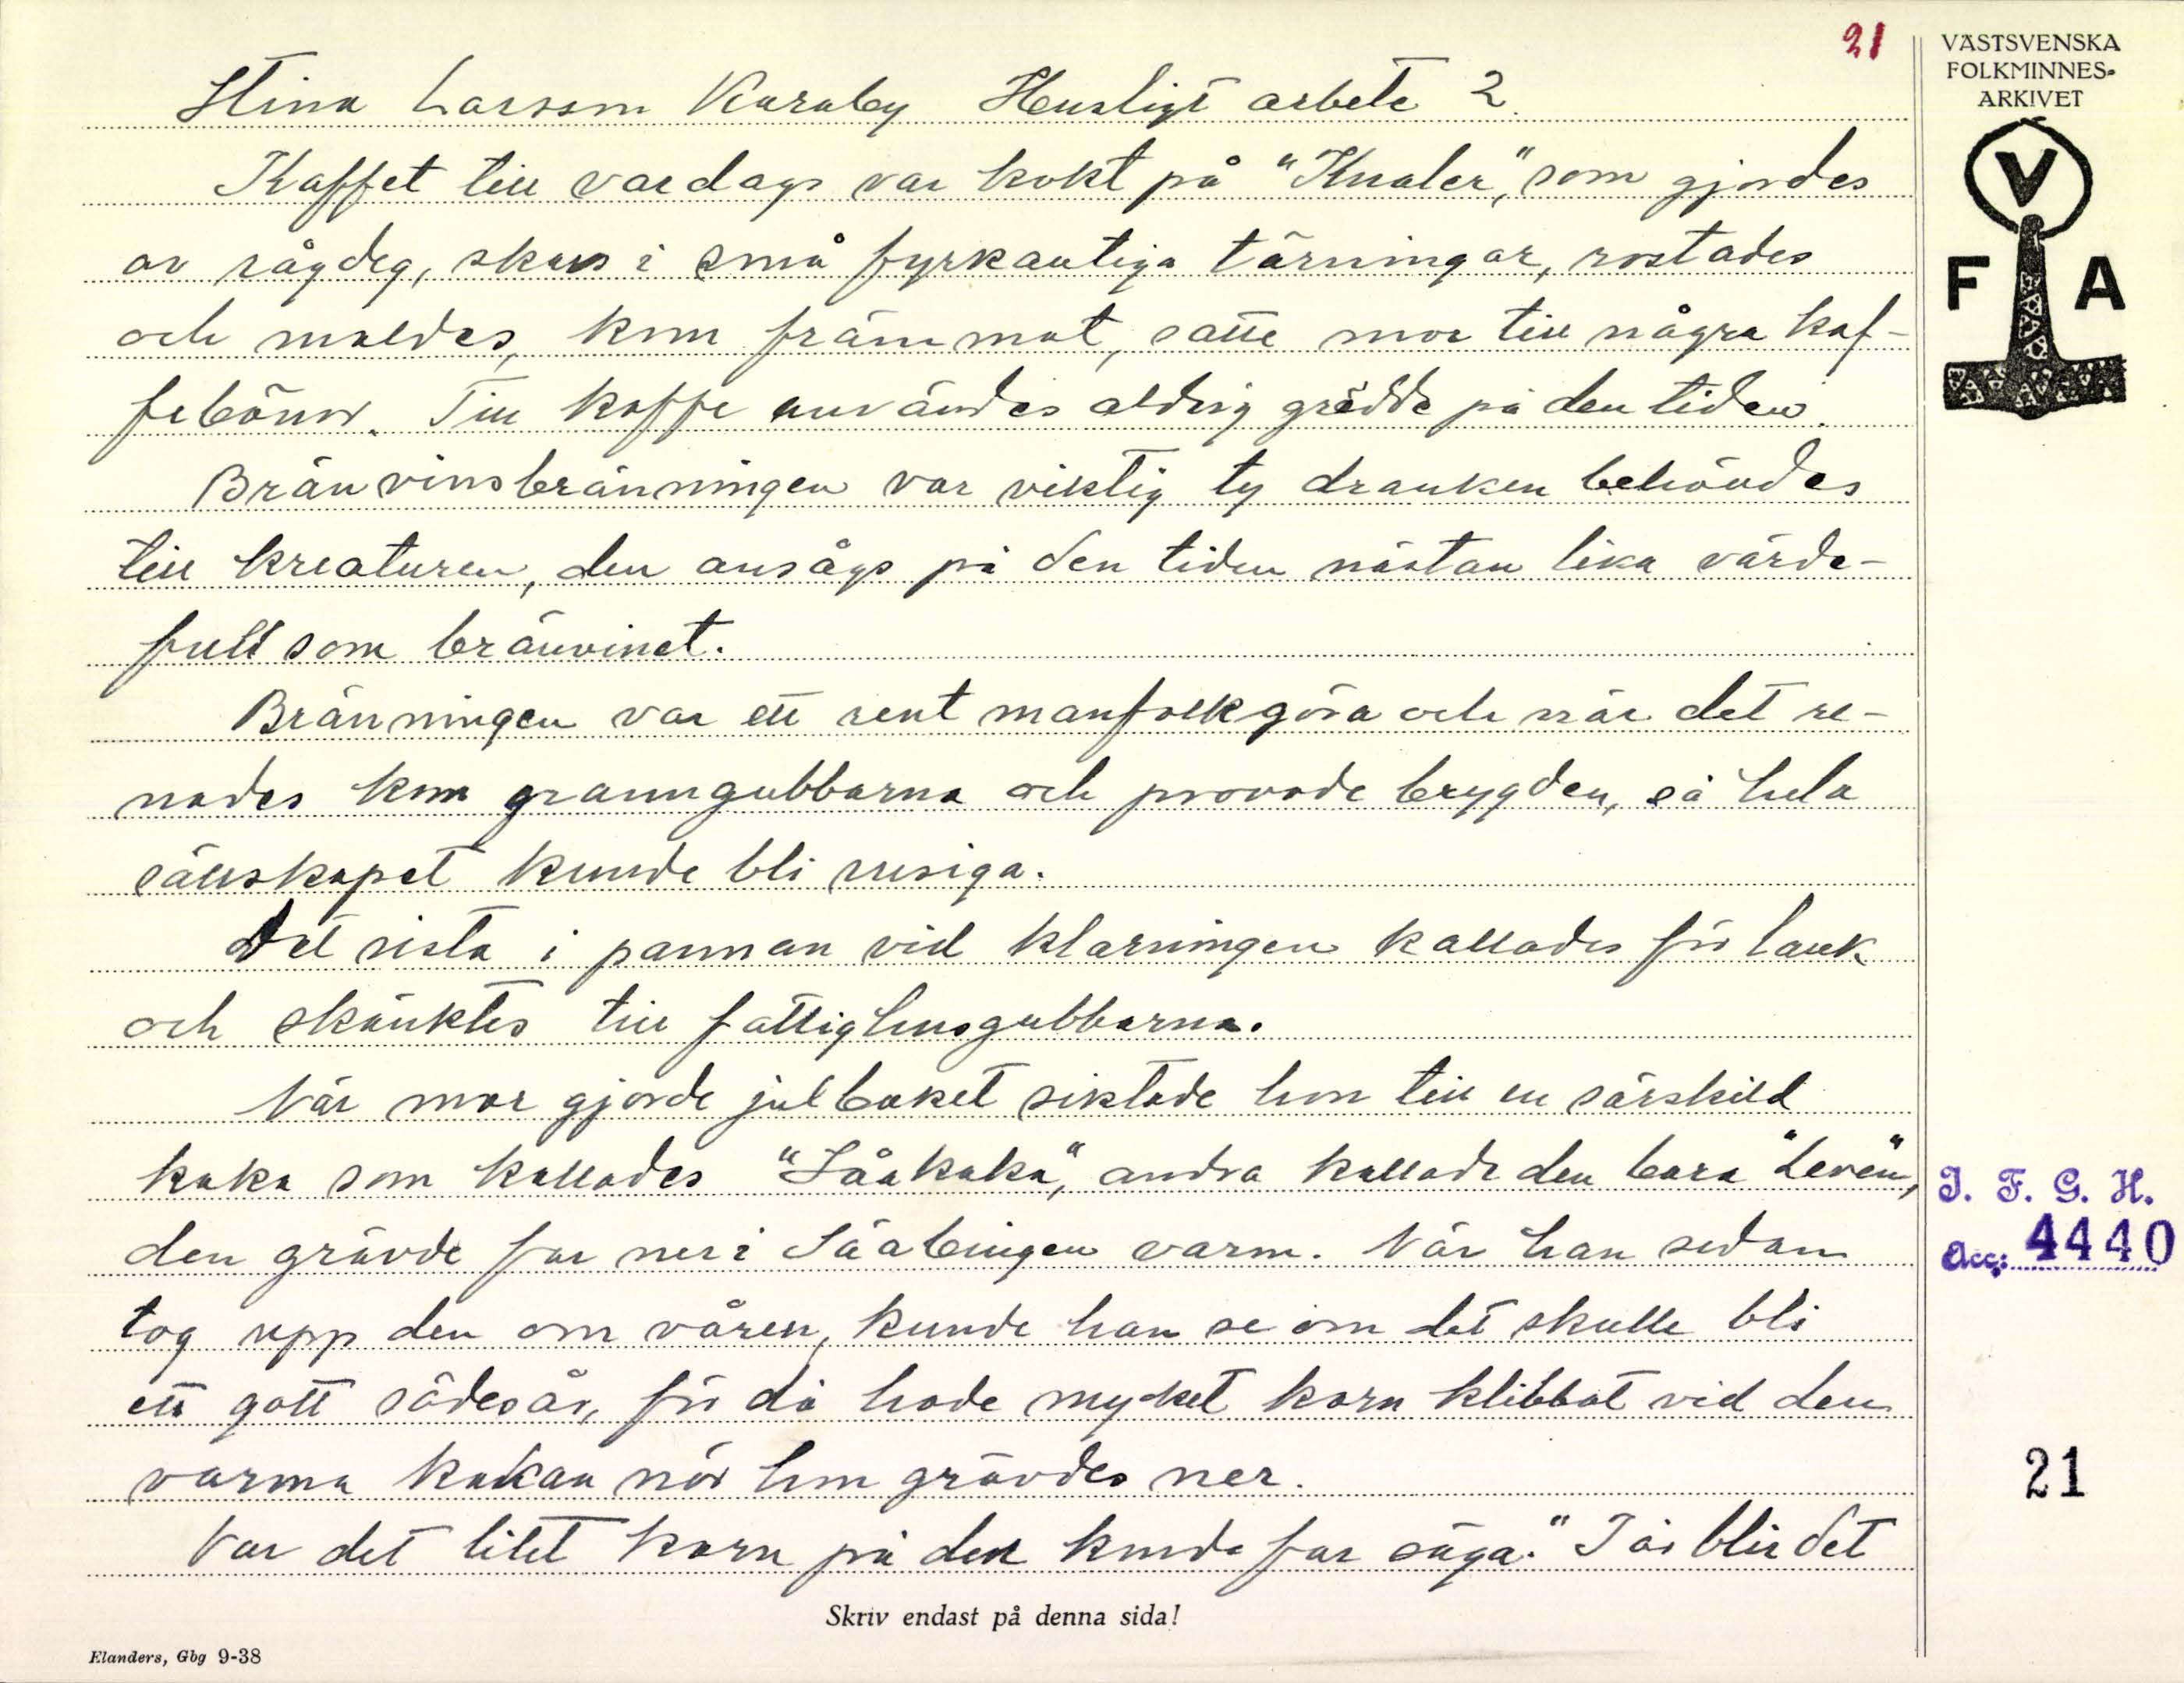 21
VÄSTSVENSKA
FOLKMINNES-
ARKIVET
V
F A
Stina Larsson Karaby Husligt arbete 2.
Kaffet till vardags var kokt på "Knaler", som gjordes
av rågdeg, skars i små fyrkantiga tärningar, rostades
och maldes, kom främmat, satte mor till några kaf-
febönor. Till kaffe användes aldrig grädde på den tiden.
Bränvinsbränningen var viktig ty dranken behövdes
till kreaturen, den ansågs på den tiden nästan lika värde-
full som bränvinet.
Bränningen var ett rent manfolkgöra och när det re-
nades kom granngubbarna och provade brygden, så hela
sällskapet kunde bli rusiga.
Det sista i pannan vid klarningen kallades för lank
och skänktes till fattighusgubbarna.
När mor gjorde julbaket siktade hon till en särskild
kaka som kallades "Såakaka", andra kallade den bara "Leven",
den grävde far ner i Såabingen varm. När han sedan
tog upp den om våren, kunde han se om det skulle bli
ett gott sädesår, för då hade mycket korn klibbat vid den
varma kakan när hon grävdes ner.
Var det litet korn på den kunde far säga: "I år blir det
Skriv endast på denna sida!
Elanders, Gbg 9-38
I. F. G. H.
Acc: 4440
21